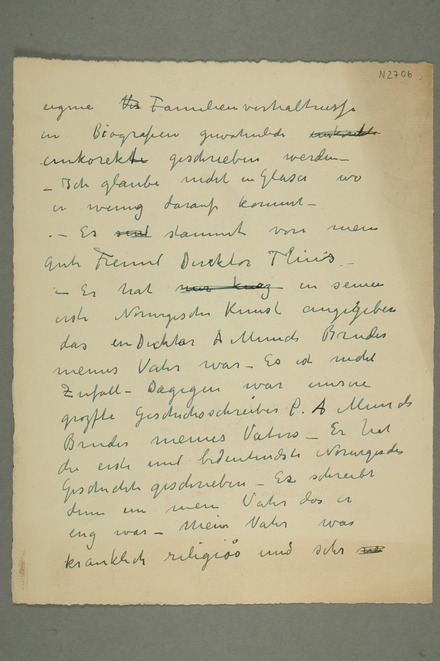 N2706
eigne Familienverhältnisse
in Biografien gewöhnlich
inkorekte geschrieben werden –
– Ich glaube nicht Glaser wo
er wenig darauf kommt –
– Es stammt von mein
Gute Freund Direktor Thiis –
– Er hat in seiner
erste Norwegische Kunst angegeben
das ein Dichter A Munch Bruder
meines Vater war – Es ist nicht
Zufall – Dagegen war unsere
größte Geschichtsschreiber P. A Munch
Bruder meines Vaters – Er hat
die erste und bedeutendste Norwegische
Geschichte geschrieben – Es schreibt
denn um mein Vater das er
eng war – Mein Vater war
kranklich religiös und sehr